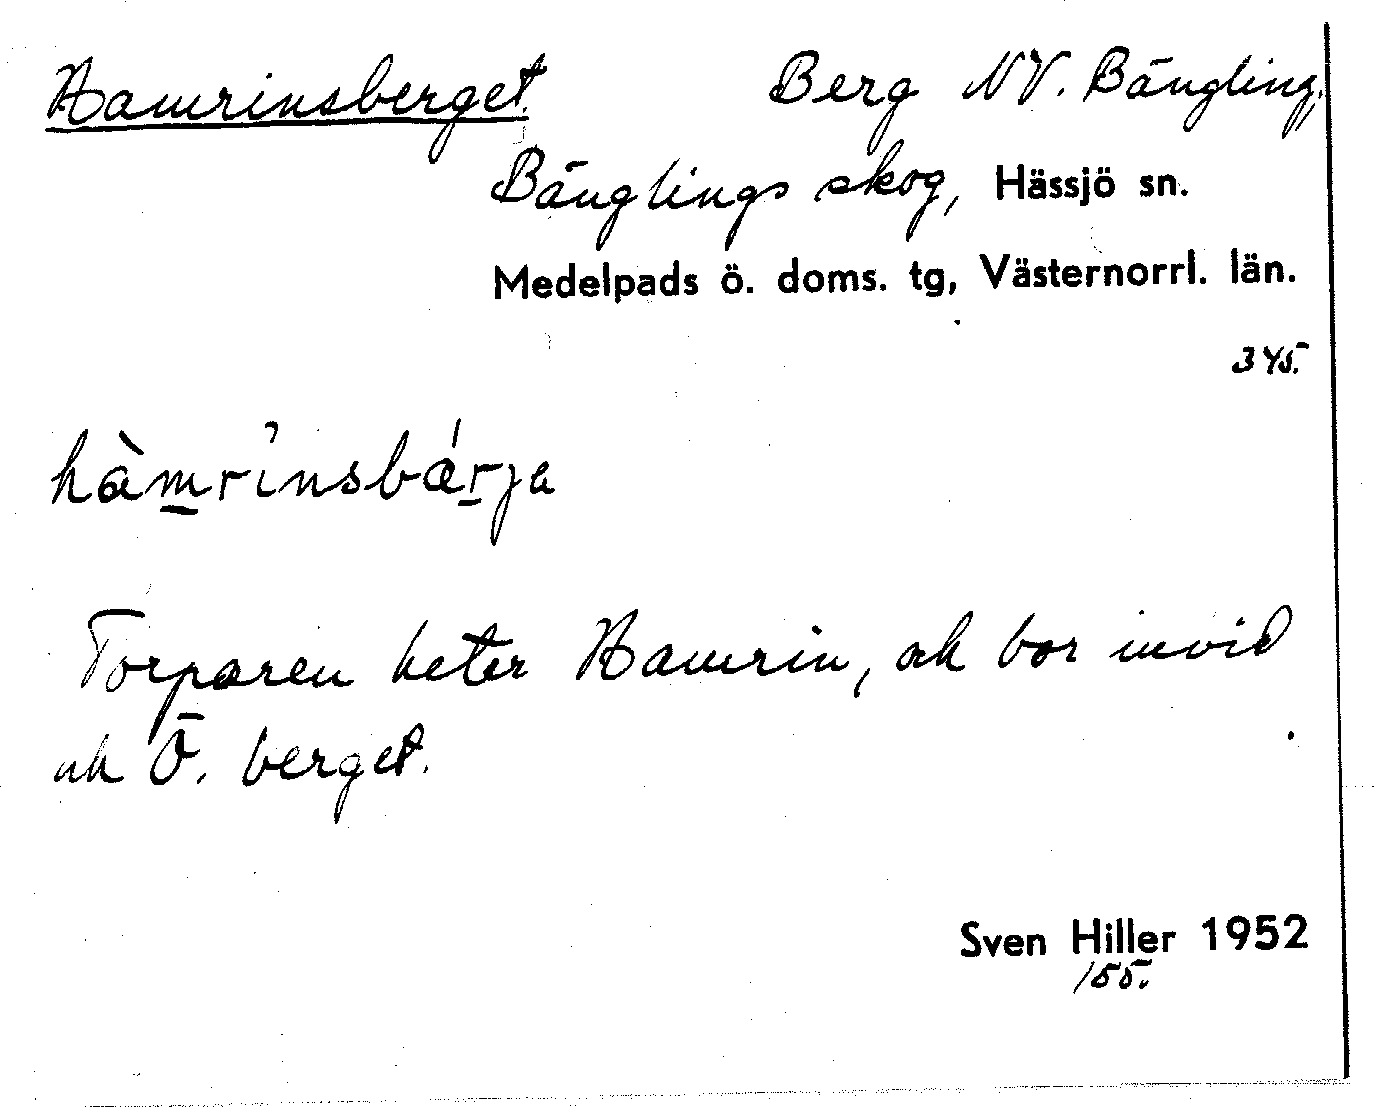 Hamrinsberget. Berg NV. Bängling,
Bänglings skog, Hässjö sn.
Medelpads ö. doms. tg, Västernorrl. län.
345.
hàmrinsbárja
Torparen heter Hamrin, ok bor invid
ok Ö. berget.
Sven Hiller 1952
155.